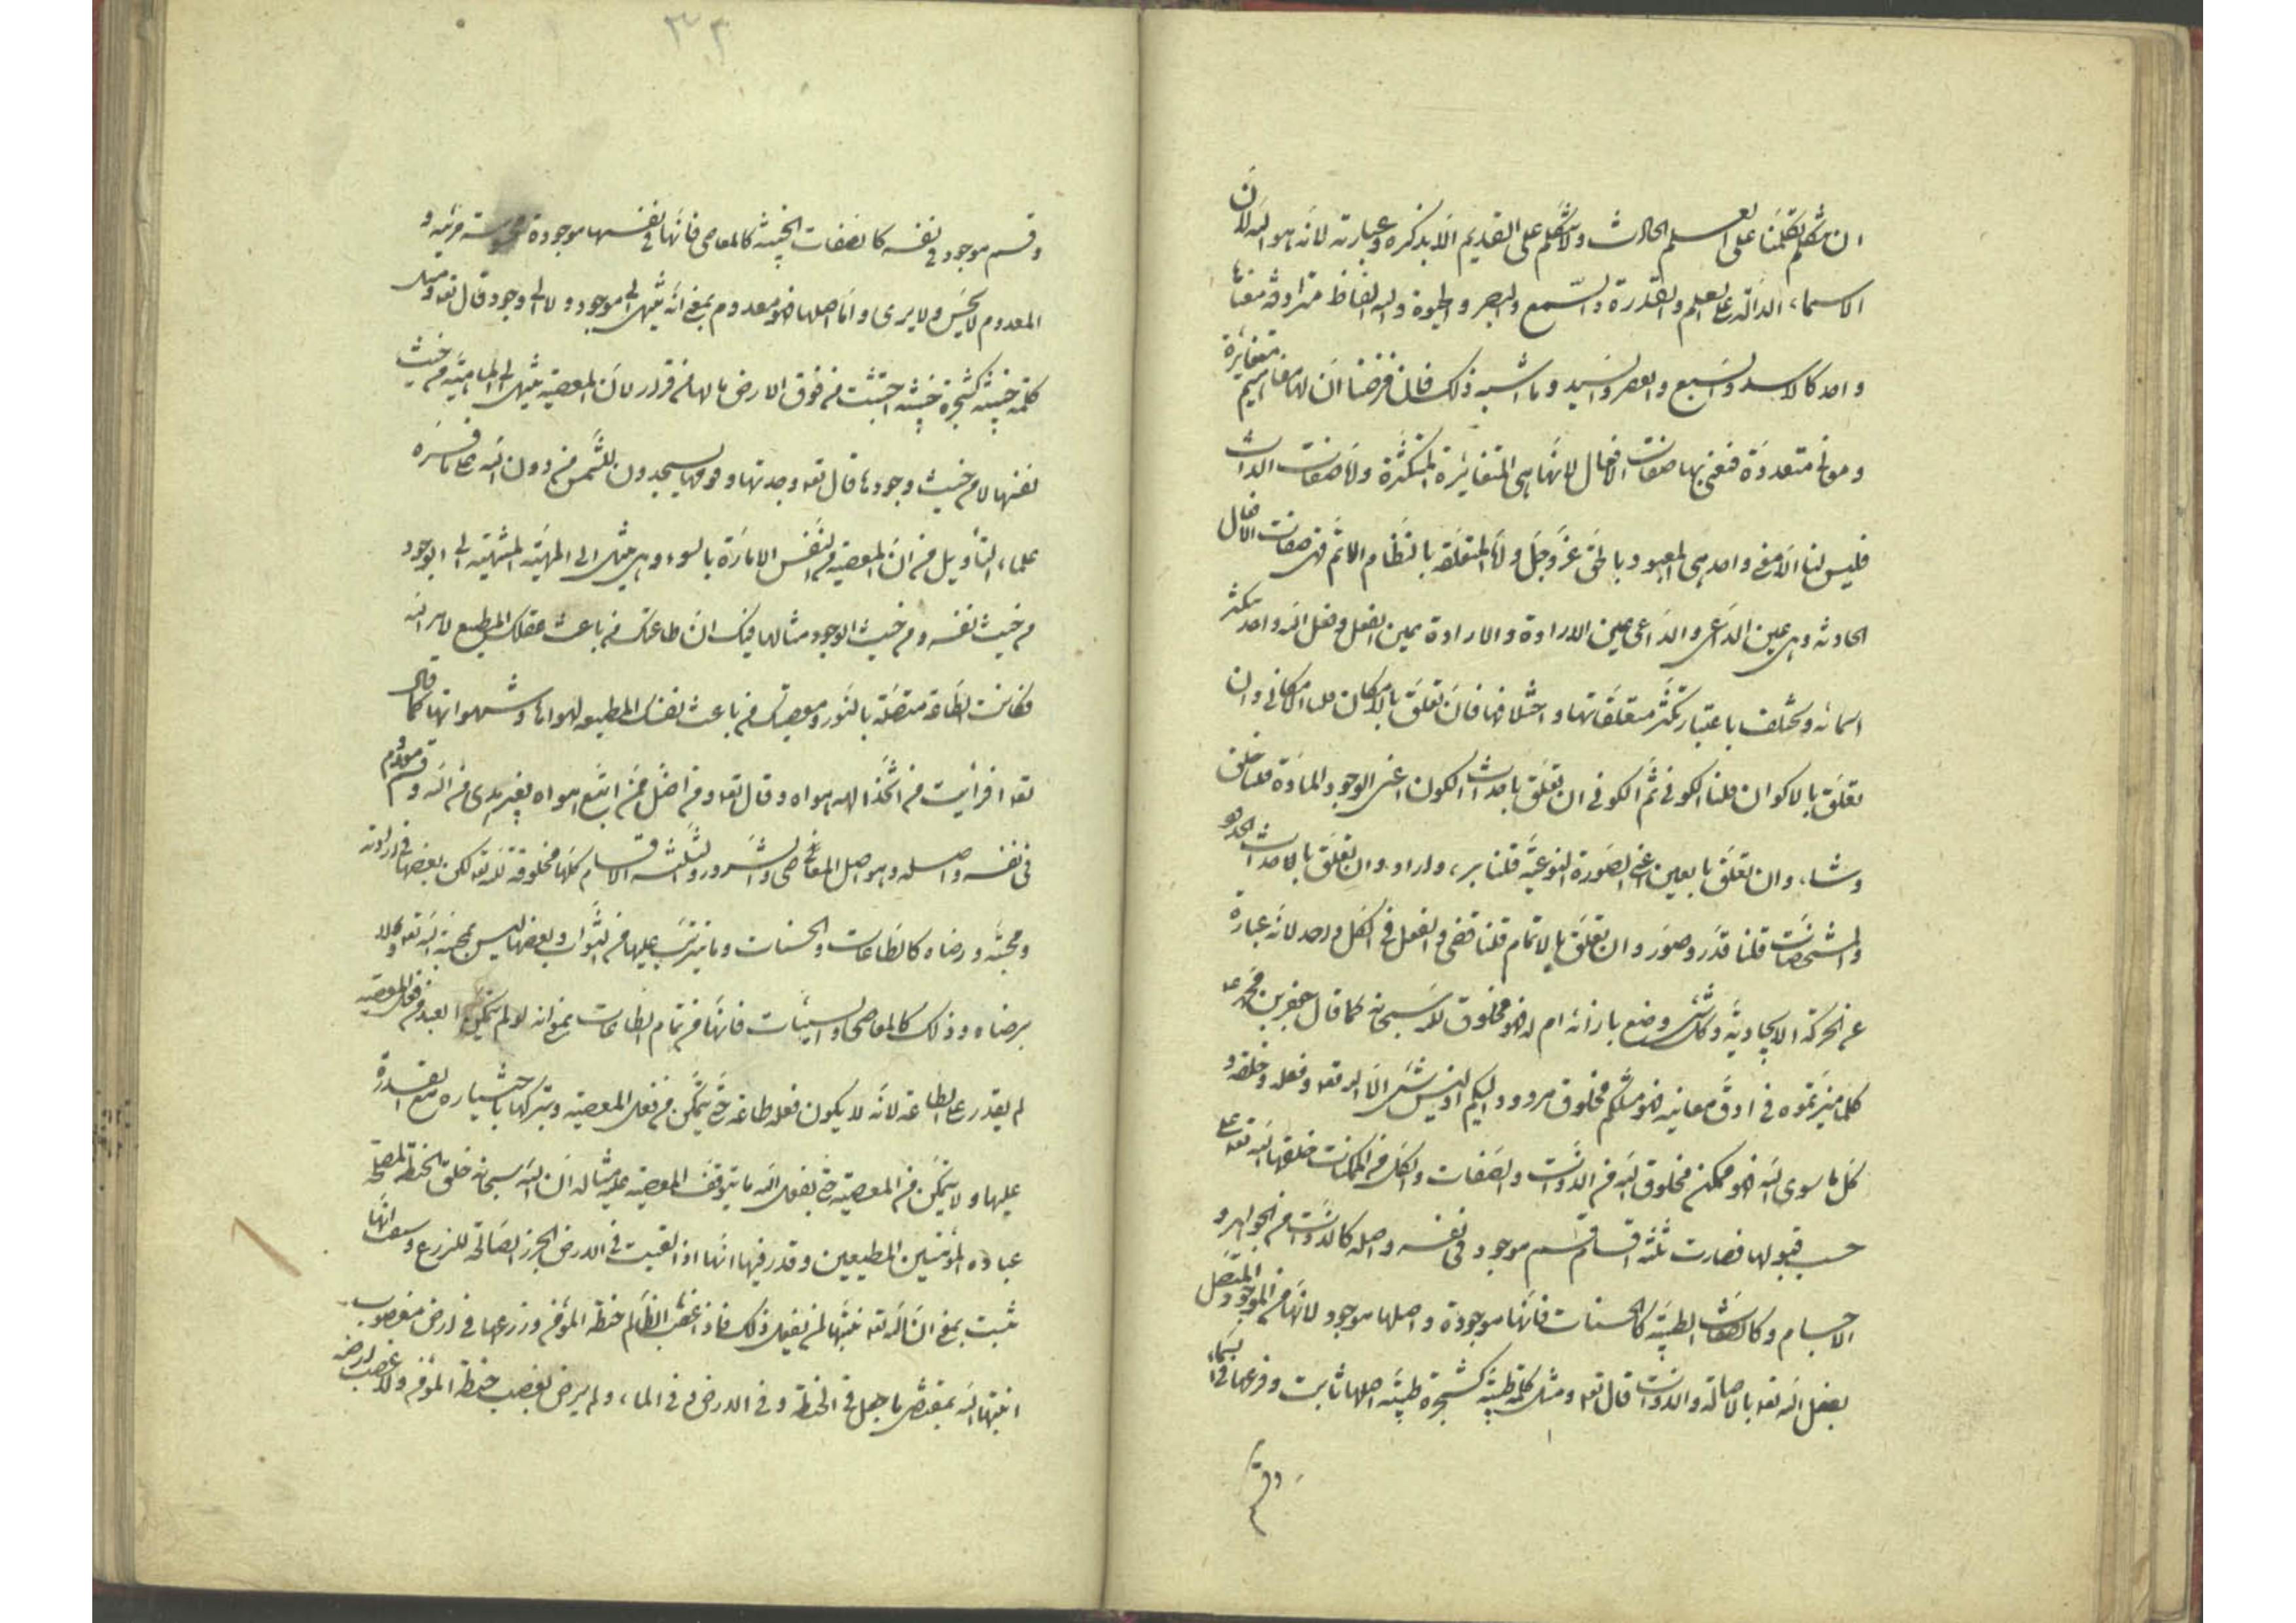 ان نتكلم تكلمنا على العلم الحادث ولا نتكلم على القديم الا بذكره وعبارته لانه هو الله لان
الاسماء الدالة على العلم والقدرة والسمع والبصر والحيوة والله الفاظ مترادفة معناها
واحد كالاسد والسبع والعصر والسيد وما اشبه ذلك فان فرضنا ان لها مفاهيم متغايرة
ومعان متعددة فنعنى بها صفات الافعال لانها هى المتغايرة المتكثرة ولا صفات الذات
فليس لنا الا معنى واحد هى المعبود بالحق عز وجل ولا المتعلقة بالنظام الاتم فهى صفات الافعال
الحادثة وهى عين الداعى والداعى عين الارادة والارادة عين الفعل وفعل الله واحد تتكثر
اسمائه وتختلف باعتبار تكثر متعلقاتها واختلافها فان تعلق بالامكان قلنا الامكانى وان
تعلق بالاكوان قلنا الكونى ثم الكونى ان تعلق باحداث الكون اعنى الوجود المادة قلنا خلق
وشاء وان تعلق بالعين اعنى الصورة النوعية قلنا برء واراد وان تعلق باحداث الحدود
والمشخصات قلنا قدر وصور وان تعلق بالاتمام قلنا قضى والفعل فى الكل واحد لانه عبارة
عن الحركة الايجادية وكل شئ وضع بازائه اسم له فهو مخلوق لله سبحانه كما قال جعفر بن محمد ع
كلما ميزتموه فى ادق معانيه فهو مثلكم مخلوق مردود اليكم اذ ليس شئ الا الله تعه وفعله وخلقه و
كل ما سوى الله فهو ممكن مخلوق لله من الذوات والصفات والكل من الممكنات خلقها الله تعه على
حسب قبولها فصارت ثلثة اقسام قسم موجود فى نفسه واصله كالذوات من الجواهر و
الاجسام وكالصفات الطيبة كالحسنات فانها موجودة واصلها موجود لانها من الموجود المتصل
بفعل الله تعه بالاصالة والذات قال تعه ومثل كلمة طيبة كشجرة طيبة اصلها ثابت وفرعها فى السماء
وقسم
وقسم موجود فى نفسه كالصفات الخبيثة كالمعاصى فانها فى نفسها موجودة محسوسة مرئية و
المعدوم لا يحس ولا يرى واما اصلها فهو معدوم بمعنى انه ينتهى الى موجود ولا الى وجود قال تعه ومثل
كلمة خبيثة كشجرة خبيثة اجتثت من فوق الارض ما لها من قرار لان المعصية ينتهى الى الماهية من حيث
نفسها لا من حيث وجودها قال تعه وجدتها وقومها يسجدون للشمس من دون الله على ما فسره
علماء التأويل من ان المعصية من النفس الامارة بالسوء وهى تنتهى الى المهية المنتهية الى الوجود
من حيث نفسه ومن حيث الوجود مثالها فيك ان طاعتك من باعث عقلك المطيع لامر الله
فكانت الطاعة متصلة بالنور ومعصيتك من باعث نفسك المطيعة لهواها وشهواتها كما قال
تعه افرأيت من اتخذ الهه هواه وقال تعه ومن اضل ممن اتبع هواه بغير هدى من الله وقسم معدوم
فى نفسه واصله وهو اصل المعاصى والشرور والثلثة الاقسام كلها مخلوقة لله تعه لكن بعضها فى ارادته
ومحبته ورضاه كالطاعات والحسنات وما يترتب عليها من الثواب وبعضها ليس بمحبة الله تعه ولا
برضاه وذلك كالمعاصى والسيئات فانها من تمام الطاعات بمعنى انه لو لم يتمكن العبد من فعل المعصية
لم يقدر على الطاعة لانه لا يكون فعله طاعة حتى يتمكن من فعل المعصية ويتركها باختياره مع القدرة
عليها ولا يتمكن من المعصية حتى يفعل الله ما يتوقف المعصية عليه مثاله ان الله سبحانه خلق الحنطة لمصلحة
عباده المؤمنين المطيعين وقدر فيها انها اذا القيت فى الارض الجرز الصالحة للزرع وسقاها انها
تنبت بمعنى ان الله تعه ينبتها لمن يفعل ذلك فاذا غصب الظالم حنطة المؤمن وزرعها فى ارض مغصوب
انبتها الله بمقتضى ما جعل فى الحنطة وفى الارض وفى الماء ولم يرض بغصب حنطة المؤمن ولا غصب ارضه